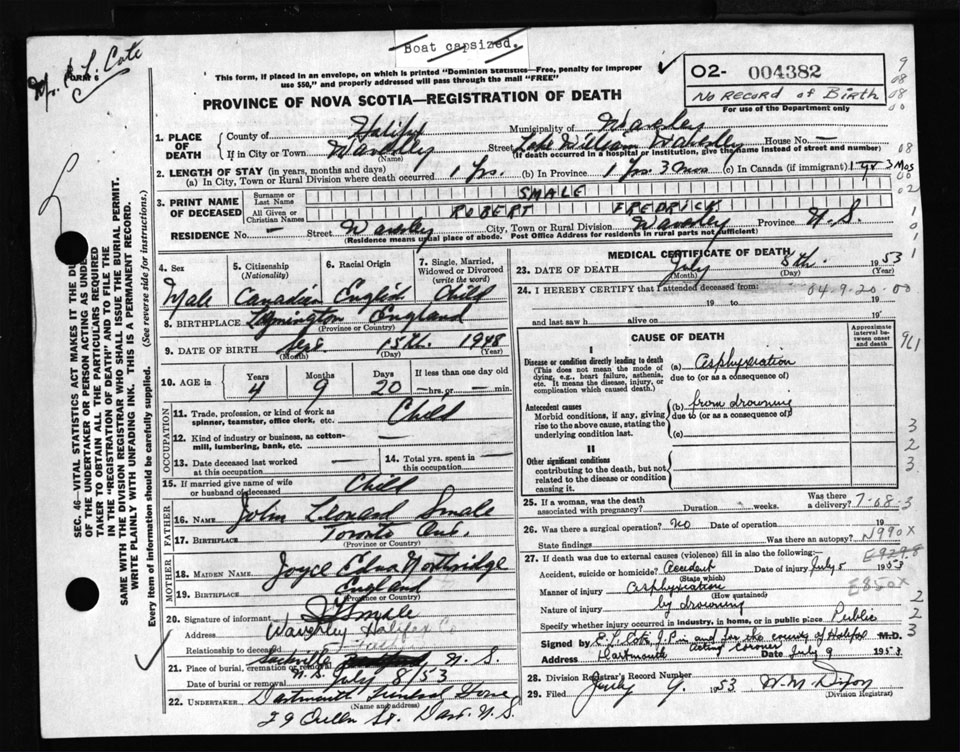 Boat capsized.
Mr. R L Cote
FORM 6
This form, if placed in an envelope, on which is printed "Dominion Statistics—Free, penalty for improper
use $50," and properly addressed will pass through the mail "FREE"
O2- 004382
No Record of Birth
For use of the Department only
PROVINCE OF NOVA SCOTIA—REGISTRATION OF DEATH
1. PLACE OF DEATH
County of Halifax Municipality of Waverley
If in City or Town Waverley (Name) Street Lake William Waverley House No. —
(If death occurred in a hospital or institution, give the name instead of street and number)
2. LENGTH OF STAY (in years, months and days)
(a) In City, Town or Rural Division where death occurred 1 Yrs. (b) In Province 1 Yrs 3 mos (c) In Canada (if immigrant) 1 yr 3 Mos
3. PRINT NAME OF DECEASED
Surname or Last Name SMALE
All Given or Christian Names ROBERT FREDRICK
RESIDENCE No. — Street Waverley City, Town or Rural Division Waverley Province N.S.
(Residence means usual place of abode. Post Office Address for residents in rural parts not sufficient)
4. Sex Male
5. Citizenship (Nationality) Canadian
6. Racial Origin English
7. Single, Married, Widowed or Divorced (write the word) Child
8. BIRTHPLACE Leamington England
(Province or Country)
9. DATE OF BIRTH (Month) 15th. (Day) 1948 (Year)
10. AGE in Years 4 Months 9 Days 20 If less than one day old — hrs. or — min.
OCCUPATION
11. Trade, profession, or kind of work as spinner, teamster, office clerk, etc. Child
12. Kind of industry or business, as cotton-mill, lumbering, bank, etc. —
13. Date deceased last worked at this occupation —
14. Total yrs. spent in this occupation —
15. If married give name of wife or husband of deceased Child
FATHER
16. NAME John Leonard Smale
17. BIRTHPLACE Toronto Ont.
(Province or Country)
MOTHER
18. MAIDEN NAME Joyce Edna Northridge
19. BIRTHPLACE England
(Province or Country)
20. Signature of informant J L Smale
Address Waverley Halifax Co
Relationship to deceased
21. Place of burial, cremation or removal Sackville N.S.
Date of burial or removal N.S. July 8/53
22. UNDERTAKER Dartmouth Funeral Home
(Name and address)
29 Queen St. Dart. N.S.
MEDICAL CERTIFICATE OF DEATH
23. DATE OF DEATH July (Month) 5th. (Day) 1953 (Year)
24. I HEREBY CERTIFY that I attended deceased from: 04-9-20-00
19 to 19
and last saw h alive on 19
CAUSE OF DEATH
Approximate interval between onset and death
I
Disease or condition directly leading to death
(This does not mean the mode of dying, e.g., heart failure, asthenia, etc. It means the disease, injury, or complication which caused death.)
(a) Asphyxiation
due to (or as a consequence of)
Antecedent causes
Morbid conditions, if any, giving rise to the above cause, stating the underlying condition last.
(b) from drowning
due to (or as a consequence of)
(c)
II
Other significant conditions
contributing to the death, but not related to the disease or condition causing it.
25. If a woman, was the death associated with pregnancy? Duration weeks. Was there a delivery? 7-08-3
26. Was there a surgical operation? no Date of operation 19
State findings Was there an autopsy? N990X
27. If death was due to external causes (violence) fill in also the following:— E929.8
Accident, suicide or homicide? Accident (State which) Date of injury July 5 1953
Manner of injury Asphyxiation (How sustained) E850X
Nature of injury by drowning
Specify whether injury occurred in industry, in home, or in public place Public
Signed by E. L. Cote J.P. in and for the county of Halifax M.D.
Acting Coroner
Address Dartmouth Date July 9 1953
28. Division Registrar's Record Number
29. Filed July 9. 1953 W. M. Dixon (Division Registrar)
SEC. 46—VITAL STATISTICS ACT MAKES IT THE DUTY
OF THE UNDERTAKER OR PERSON ACTING AS UNDER-
TAKER TO OBTAIN ALL THE PARTICULARS REQUIRED
IN THE "REGISTRATION OF DEATH" AND TO FILE THE
SAME WITH THE DIVISION REGISTRAR WHO SHALL ISSUE THE BURIAL PERMIT.
WRITE PLAINLY WITH UNFADING INK. THIS IS A PERMANENT RECORD.
Every item of information should be carefully supplied. (See reverse side for instructions.)